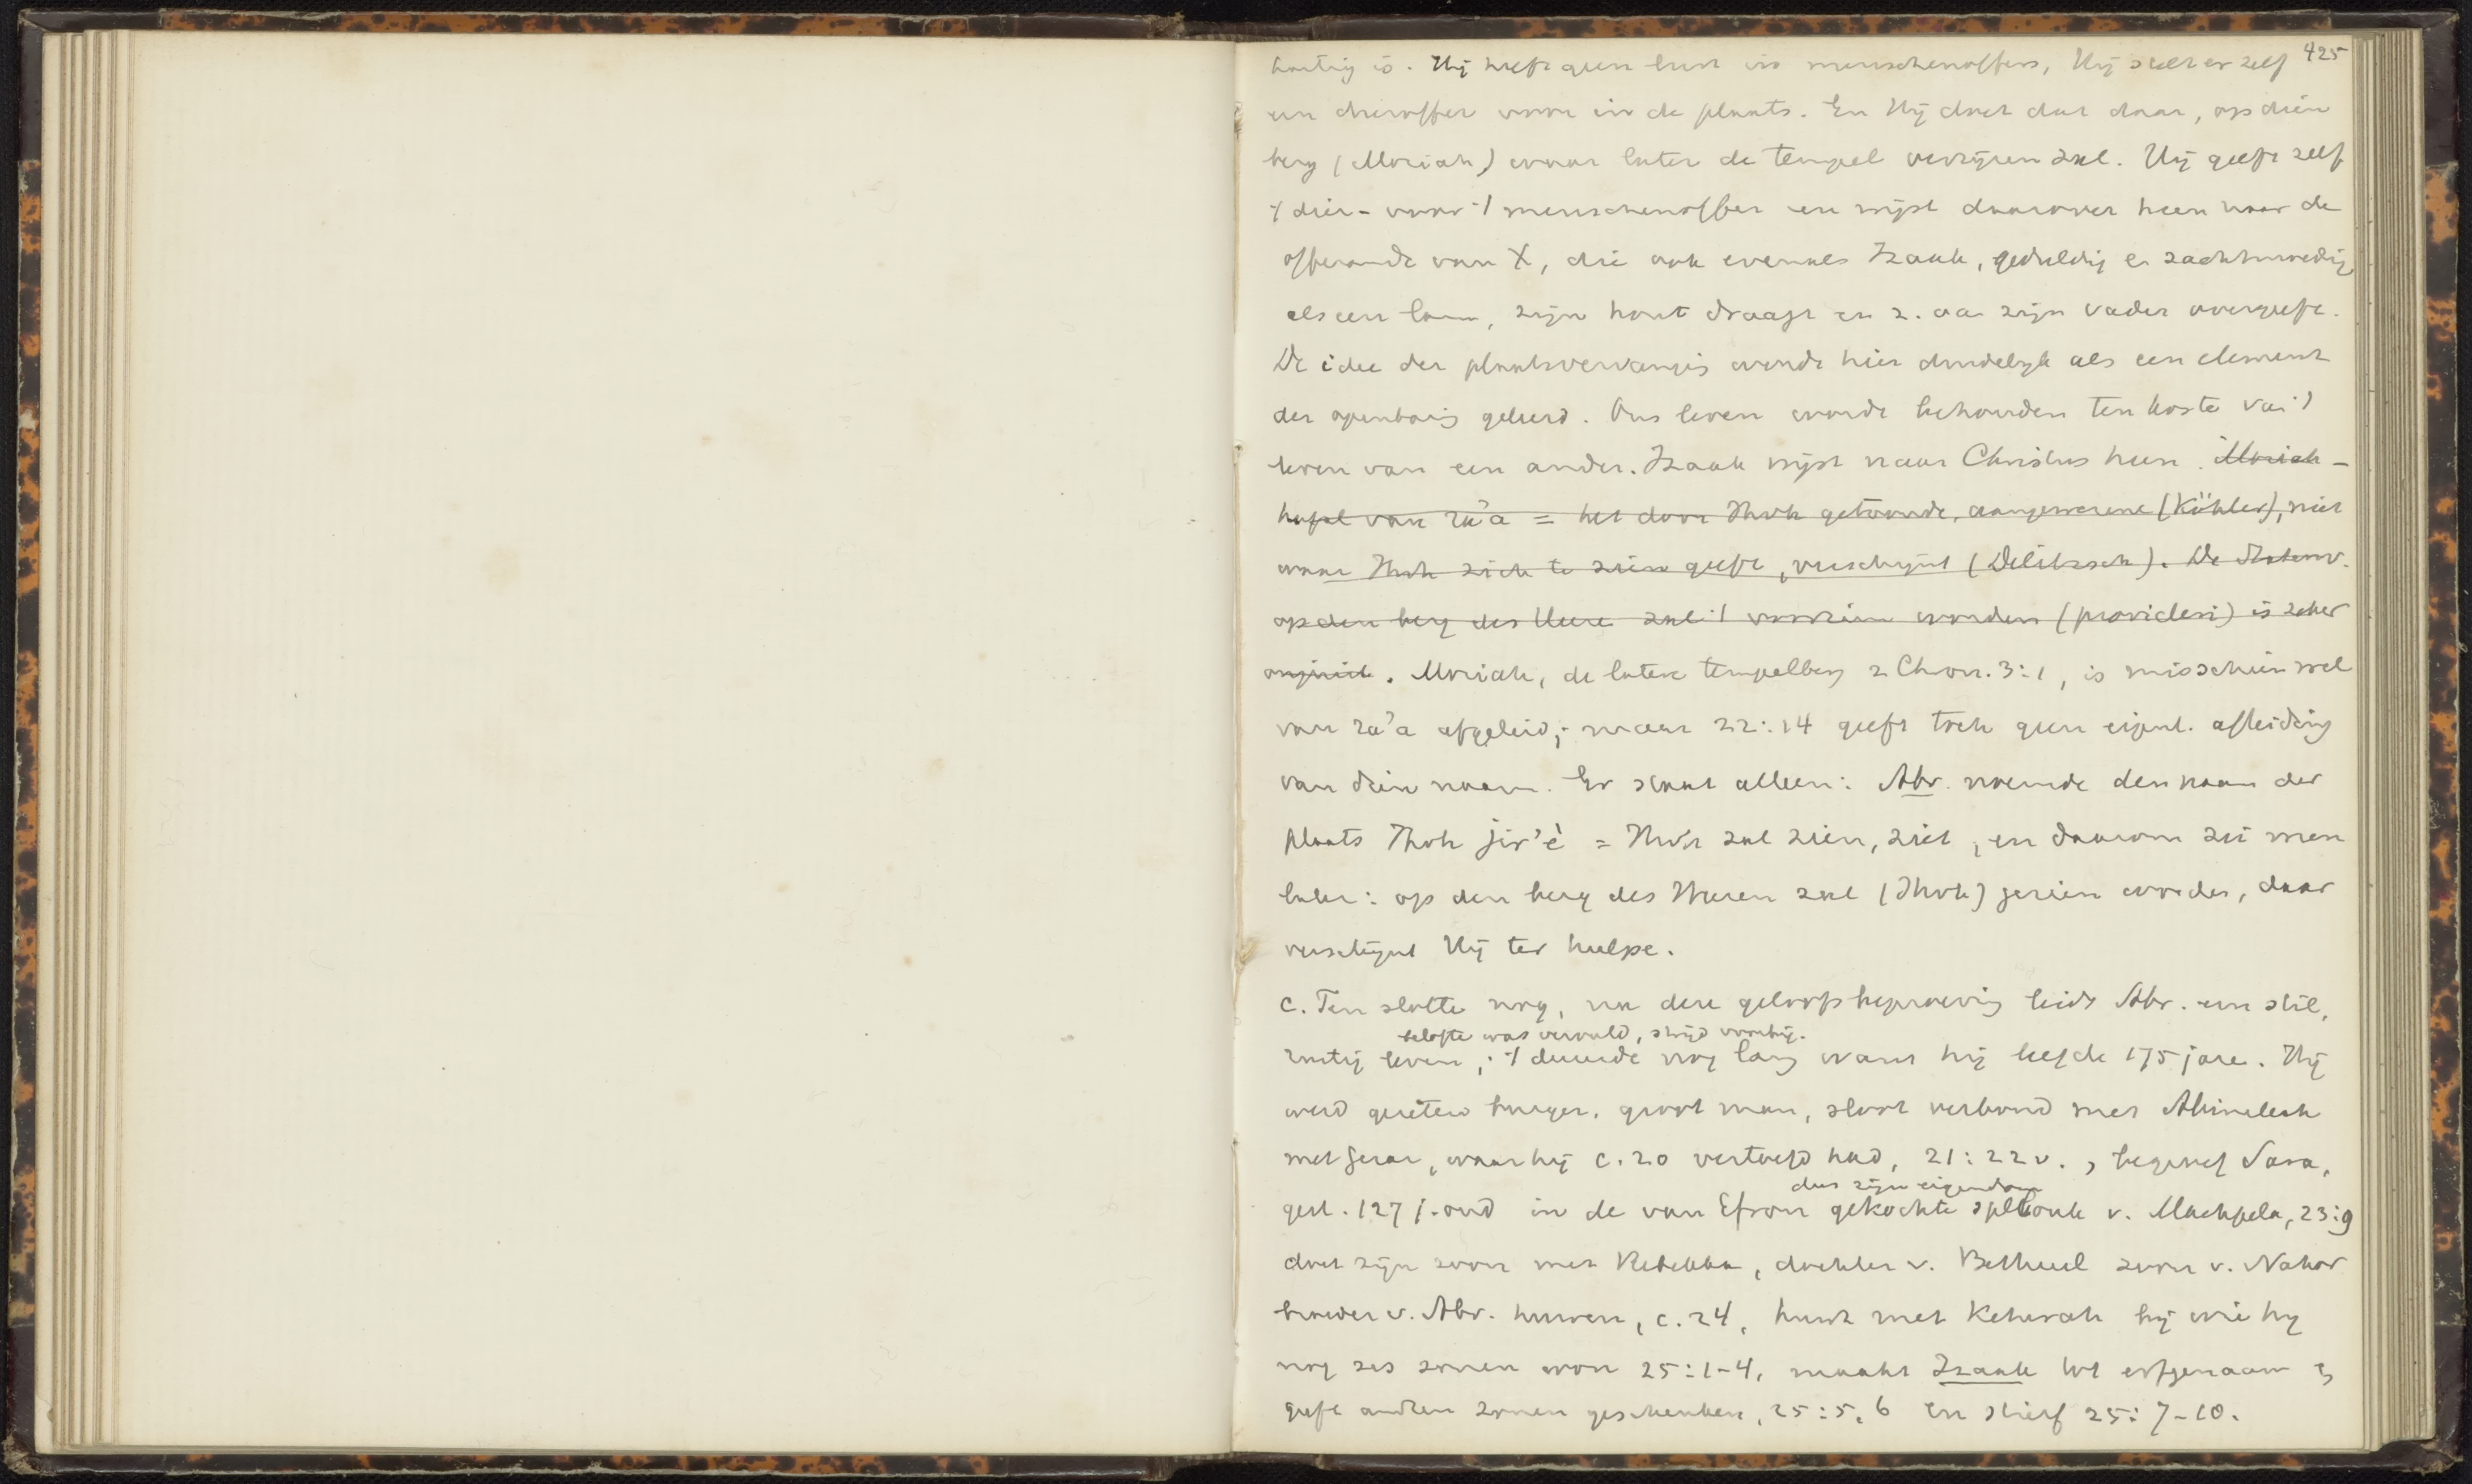 425
hartig is. Hij heeft geen lust in menschenoffers, Hij stelt er zelf
een dieroffer voor in de plaats. En Hij doet dat daar, op dien
berg (Moriah) waar later de tempel verrijzen zal. Hij geeft zelf
't dier- voor 't menschenoffer en wijst daarover heen naar de
offerande van X, die ook evenals Izaak, geduldig en zachtmoedig
als een lam, zijn hout draagt en z. aan zijn vader overgeeft.
De idee der plaatsvervanging wordt hier duidelijk als een element
der openbaring geleerd. Ons leven wordt behouden ten koste van 't
leven van een ander. Izaak wijst naar Christus heen. Moriah -
van ra'a = het door Jhvh getoonde, aangewezene (Köhler), niet
waar Jhvh zich te zien geeft, verschijnt (Delitzsch). De Statenv.
op den berg des Heeren zal 't voorzien worden (provideri) is zeker
onjuist. Moriah, de latere tempelberg 2 Chron. 3:1, is misschien wel
van ra'a afgeleid; maar 22:14 geeft toch geen eigenl. afleiding
van dien naam. Er staat alleen: Abr. noemde den naam der
plaats Jhvh jir'è = Jhvh zal zien, ziet, en daarom zei men
later: op den berg des Heeren zal (Jhvh) gezien worden, daar
verschijnt Hij ter hulpe.
c. Ten slotte nog, na deze geloofsbeproeving leidt Abr. een stil,
belofte was vervuld, strijd voorbij.
rustig leven; 't duurde nog lang want hij leefde 175 jare. Hij
werd gezeten burger, groot man, sloot verbond met Abimelech
met Gerar, waar hij c. 20 vertoefd had, 21:22v., begroef Sara,
dus zijn eigendom
gest. 127 j. oud in de van Efron gekochte spelonk v. Machpela, 23:9
doet zijn zoon met Rebekka, dochter v. Bethuel zoon v. Nahor
broeder v. Abr. huwen, c. 24, huwt met Keturah bij wie hij
nog zes zonen won 25:1-4, maakt Izaak tot erfgenaam en
geeft andren zonen geschenken, 25:5,6 en stierf 25:7-10.